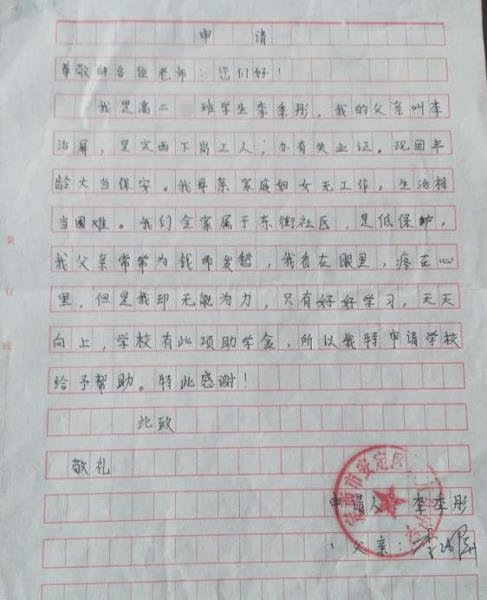 申 请
尊敬的各位老师：您们好！
我是高二 班学生李季彤，我的父亲叫李
治屏，是定西下岗工人；亦有失业证。现因年
龄大当保安。我母亲家庭妇女无工作，生活相
当困难。我们全家属于东街社区，是低保户，
我父亲常常为钱而发愁，我看在眼里，疼在心
里，但是我却无能为力，只有好好学习，天天
向上，学校有此项助学金，所以我特申请学校
给予帮助。特此感谢！
此致
敬礼
申请人：李季彤
父亲：
定西市安定区
装
订